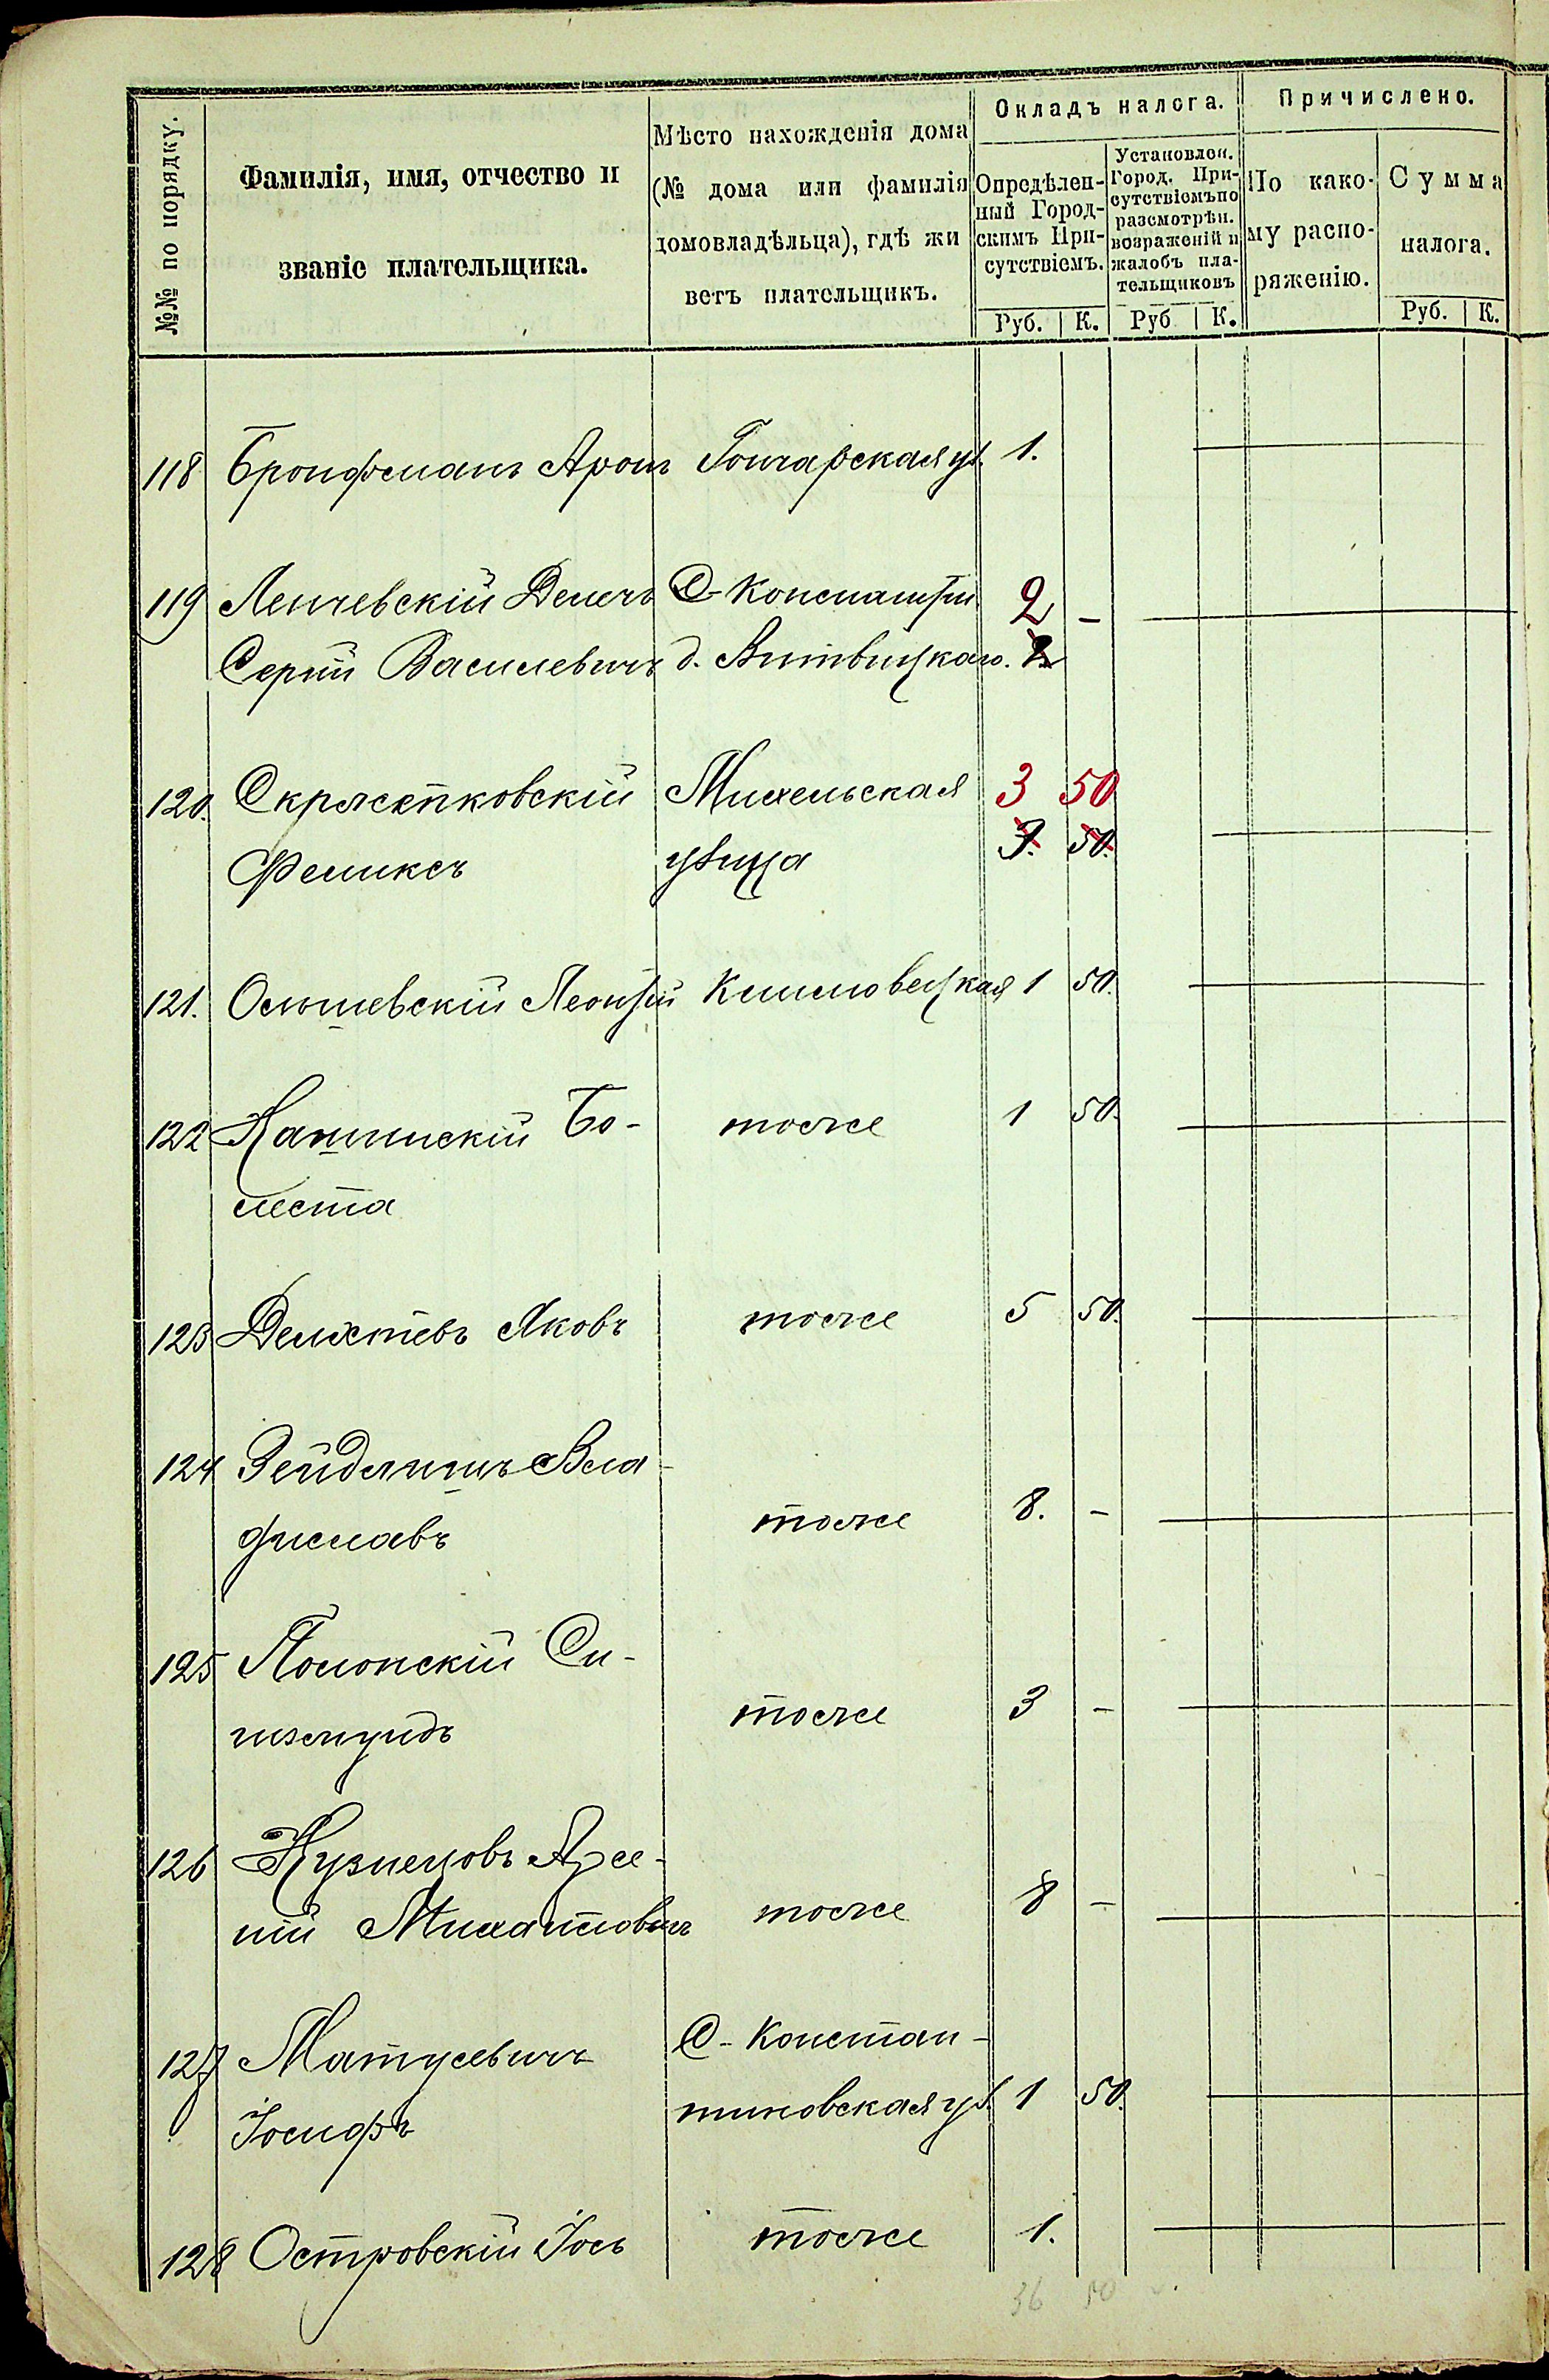 №№ по порядку.
Фамилія, имя, отчество и
званіе плательщика.
Мѣсто нахожденія дома
(№ дома или фамилія
домовладѣльца), гдѣ жи
ветъ плательщикъ.
Окладъ налога.
Опредѣлен-
ный Город-
скимъ При-
сутствіемъ.
Установлен.
Город. При-
сутствіемъ по
разсмотрѣн.
возраженій и
жалобъ пла-
тельщиковъ
Причислено.
По како-
му распо-
ряженію.
Сумма
налога.
Руб. К. Руб К. Руб. К.
118 Бронфманъ Аронъ Гончарская ул. 1.
119 Ленчевскій С-Константин 2 -
Василевичъ д. Витвицкаго. 2
120. Михельская 3 50
Феликсъ улица 3. 50.
121. Леонтій 1 50.
122 Бо- тоже 1 50.
леста
123 Яковъ тоже 5 50.
124 Зейдлицъ Вла-
диславъ тоже 8. -
125 Полонскій Си-
гизмундъ тоже 3 -
126 Кузнецовъ Арсе-
ній Михайловичъ тоже 8 -
127 Матусевичъ С-Констан-
Іосифъ тиновская ул. 1 50.
128 Островскій Іось тоже 1.
36 50